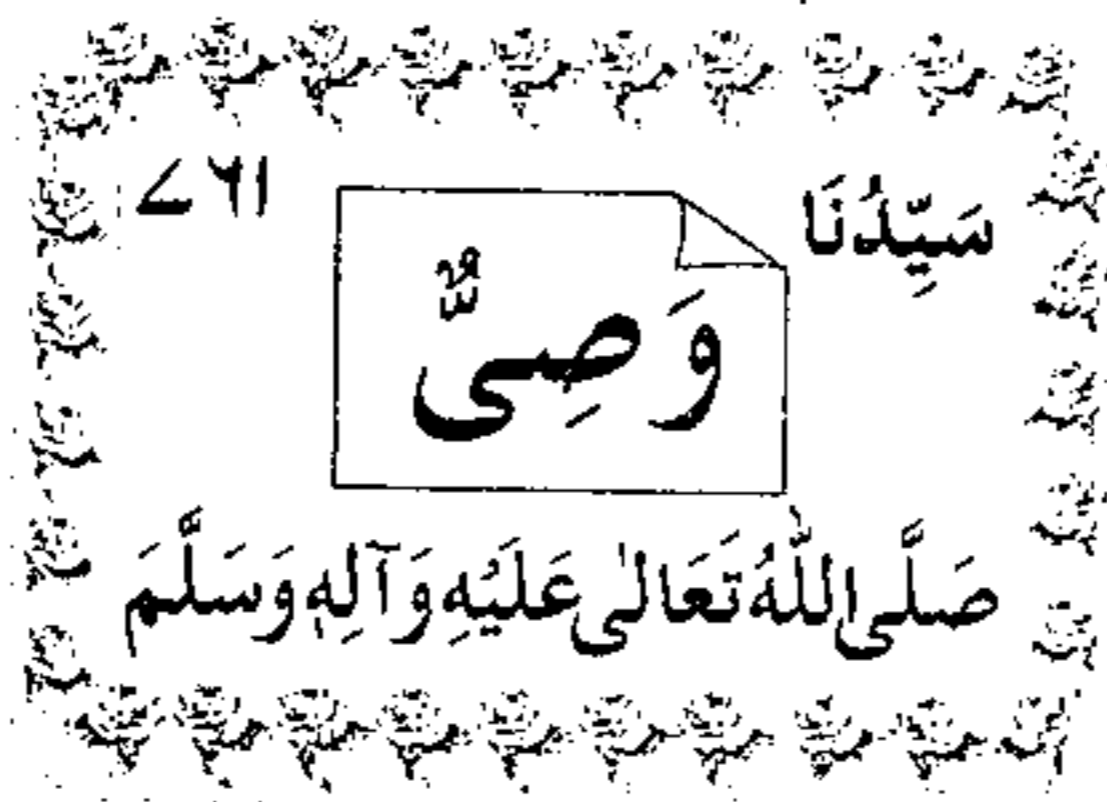 سَیِّدُنَا ۷۶۱
وَصِیٌّ
صَلَّی اللّٰهُ تَعَالٰی عَلَیْهِ وَآلِهٖ وَسَلَّمَ